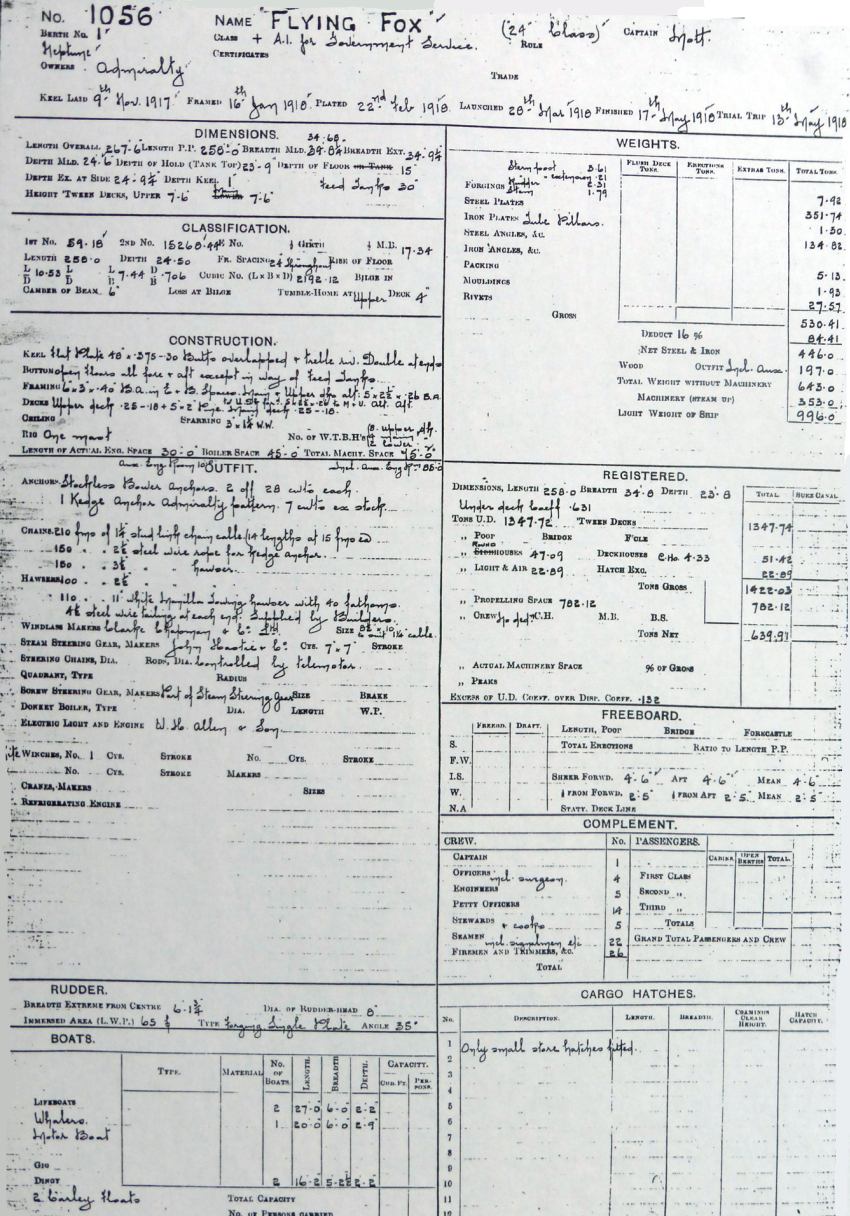 No. 1056 NAME "FLYING FOX" (24 Class) CAPTAIN Mott.
BERTH No. 1 CLASS + A.1. for Government Service. ROLE
Neptune CERTIFICATES
OWNERS Admiralty TRADE
KEEL LAID 9th Nov. 1917 FRAMED 16th Jan 1918 PLATED 22nd Feb 1918 LAUNCHED 28th Mar 1918 FINISHED 17th May 1918 TRIAL TRIP 13th May 1918
DIMENSIONS.
34.68
LENGTH OVERALL 267-6 LENGTH P.P. 258-0 BREADTH MLD. BREADTH EXT. 34-9¼
DEPTH MLD. 24-6 DEPTH OF HOLD (TANK TOP) 23-9 DEPTH OF FLOOR IN TANK 15
DEPTH EX. AT SIDE 24-9¼ DEPTH KEEL 1 Feed Tanks 30"
HEIGHT 'TWEEN DECKS, UPPER 7-6 7-6
CLASSIFICATION.
1ST No. 59.18 2ND No. 15268.44 No. ½ GIRTH ½ M.B. 17.34
LENGTH 258.0 DEPTH 24.50 FR. SPACING 24 throughout RISE OF FLOOR
L/D 10.53 L/D L/B 7.44 D/B .706 CUBIC No. (L×B×D) 2192.12 BILGE IN
CAMBER OF BEAM 6" LOSS AT BILGE TUMBLE-HOME AT Upper DECK 4"
CONSTRUCTION.
KEEL Flat Plate 48" × .375-30 Butts overlapped & treble riv. Double at ends
BOTTOM open floors all fore & aft except in way of Feed Tanks.
FRAMING 6×3×.40 B.A. in E & B. Spaces.
DECKS Upper deck .25-.18
CEILING SPARRING 3×1¼ W.W.
RIG One mast No. OF W.T.B.H's 8 upper dk.
2 lower
LENGTH OF ACTUAL ENG. SPACE 30-0 BOILER SPACE 45-0 TOTAL MACHY. SPACE 75-0
Aux. Eng Room 10 Incl. Aux. Eng Rm 85-0
OUTFIT.
ANCHORS Stockless Bower Anchors. 2 off 28 cwts each.
1 Kedge Anchor Admiralty pattern. 7 cwts ex stock.
CHAINS 210 fms of 1¼ stud link chain cable (14 lengths at 15 fms ea)
150 " " 2½ steel wire rope for Kedge anchor.
150 " 3½ " hawser.
HAWSERS 100 " 2½
110 " 11" white Manilla Towing hawser with 40 fathoms.
4½ steel wire tailing at each end. Supplied by Builders.
WINDLASS MAKERS Clarke Chapman & Co. Ltd SIZE 8½×10 to suit 1¼ cable.
STEAM STEERING GEAR, MAKERS John Hastie & Co. CYS. 7"×7" STROKE
STEERING CHAINS, DIA. RODS, DIA. Controlled by telemotor.
QUADRANT, TYPE RADIUS
SCREW STEERING GEAR, MAKERS Part of Steam Steering Gear SIZE BRAKE
DONKEY BOILER, TYPE DIA. LENGTH W.P.
ELECTRIC LIGHT AND ENGINE W. H. Allen & Son.
WINCHES, No. 1 CYS. STROKE No. CYS. STROKE
No. CYS. STROKE MAKERS
CRANES, MAKERS SIZES
REFRIGERATING ENGINE
RUDDER.
BREADTH EXTREME FROM CENTRE 6-1¾ DIA. OF RUDDER-HEAD 8"
IMMERSED AREA (L.W.P.) 65 TYPE Forging Single Plate ANGLE 35°
BOATS.
TYPE. MATERIAL No. OF BOATS. LENGTH. BREADTH DEPTH. CAPACITY.
CUB. FT. PERSONS.
LIFEBOATS
Whalers. 2 27-0 6-0 2-2
Motor Boat 1 20-0 6-0 2-9
GIG
DINGY 2 16-2 2-2
2 Carley Floats TOTAL CAPACITY
No. OF PERSONS CARRIED
WEIGHTS.
FLUSH DECK TONS. ERECTIONS TONS. EXTRAS TONS. TOTAL TONS.
Stern post 3.61
FORGINGS Rudder + extension .21 2.31
Stem 1.79 7.92
STEEL PLATES 351.74
IRON PLATES Tube Pillars. 1.30
STEEL ANGLES, &c. 134.82
IRON ANGLES, &c.
PACKING 5.13
MOULDINGS 1.93
RIVETS 27.57
GROSS 530.41
DEDUCT 16 % 84.41
NET STEEL & IRON 446.0
WOOD OUTFIT Incl. Aux. 197.0
TOTAL WEIGHT WITHOUT MACHINERY 643.0
MACHINERY (STEAM UP) 353.0
LIGHT WEIGHT OF SHIP 996.0
REGISTERED.
DIMENSIONS, LENGTH 258.0 BREADTH 34.8 DEPTH 23.8 TOTAL SUEZ CANAL
Under deck Coeff .631
TONS U.D. 1347.72 'TWEEN DECKS 1347.74
" POOP BRIDGE F'CLE
" Round HOUSES 47.09 DECKHOUSES C.Ho. 4.33 51.42
" LIGHT & AIR 22.89 HATCH EXC. 22.89
TONS GROSS 1422.03
" PROPELLING SPACE 782.12 782.12
" CREW No ded. C.H. M.B. B.S.
TONS NET 639.91
" ACTUAL MACHINERY SPACE % OF GROSS
" PEAKS
EXCESS OF U.D. COEFF. OVER DISP. COEFF. .132
FREEBOARD.
FREEBD. DRAFT. LENGTH, POOP BRIDGE FORECASTLE
S. TOTAL ERECTIONS RATIO TO LENGTH P.P.
F.W.
I.S. SHEER FORWD. 4-6" AFT 4-6" MEAN 4-6"
W. ⅛ FROM FORWD. 2-5" ⅛ FROM AFT 2-5" MEAN 2-5"
N.A STATY. DECK LINE
COMPLEMENT.
CREW. No. PASSENGERS.
CABINS OPEN BERTHS TOTAL.
CAPTAIN 1
OFFICERS incl. surgeon. 4 FIRST CLASS
ENGINEERS 5 SECOND "
PETTY OFFICERS 14 THIRD "
STEWARDS & cooks 5 TOTALS
SEAMEN incl. signalmen etc 22 GRAND TOTAL PASSENGERS AND CREW
FIREMEN AND TRIMMERS, &c. 26
TOTAL
CARGO HATCHES.
No. DESCRIPTION. LENGTH. BREADTH. COAMINGS CLEAR HEIGHT. HATCH CAPACITY.
1 Only small store hatches fitted.
2
3
4
5
6
7
8
9
10
11
12